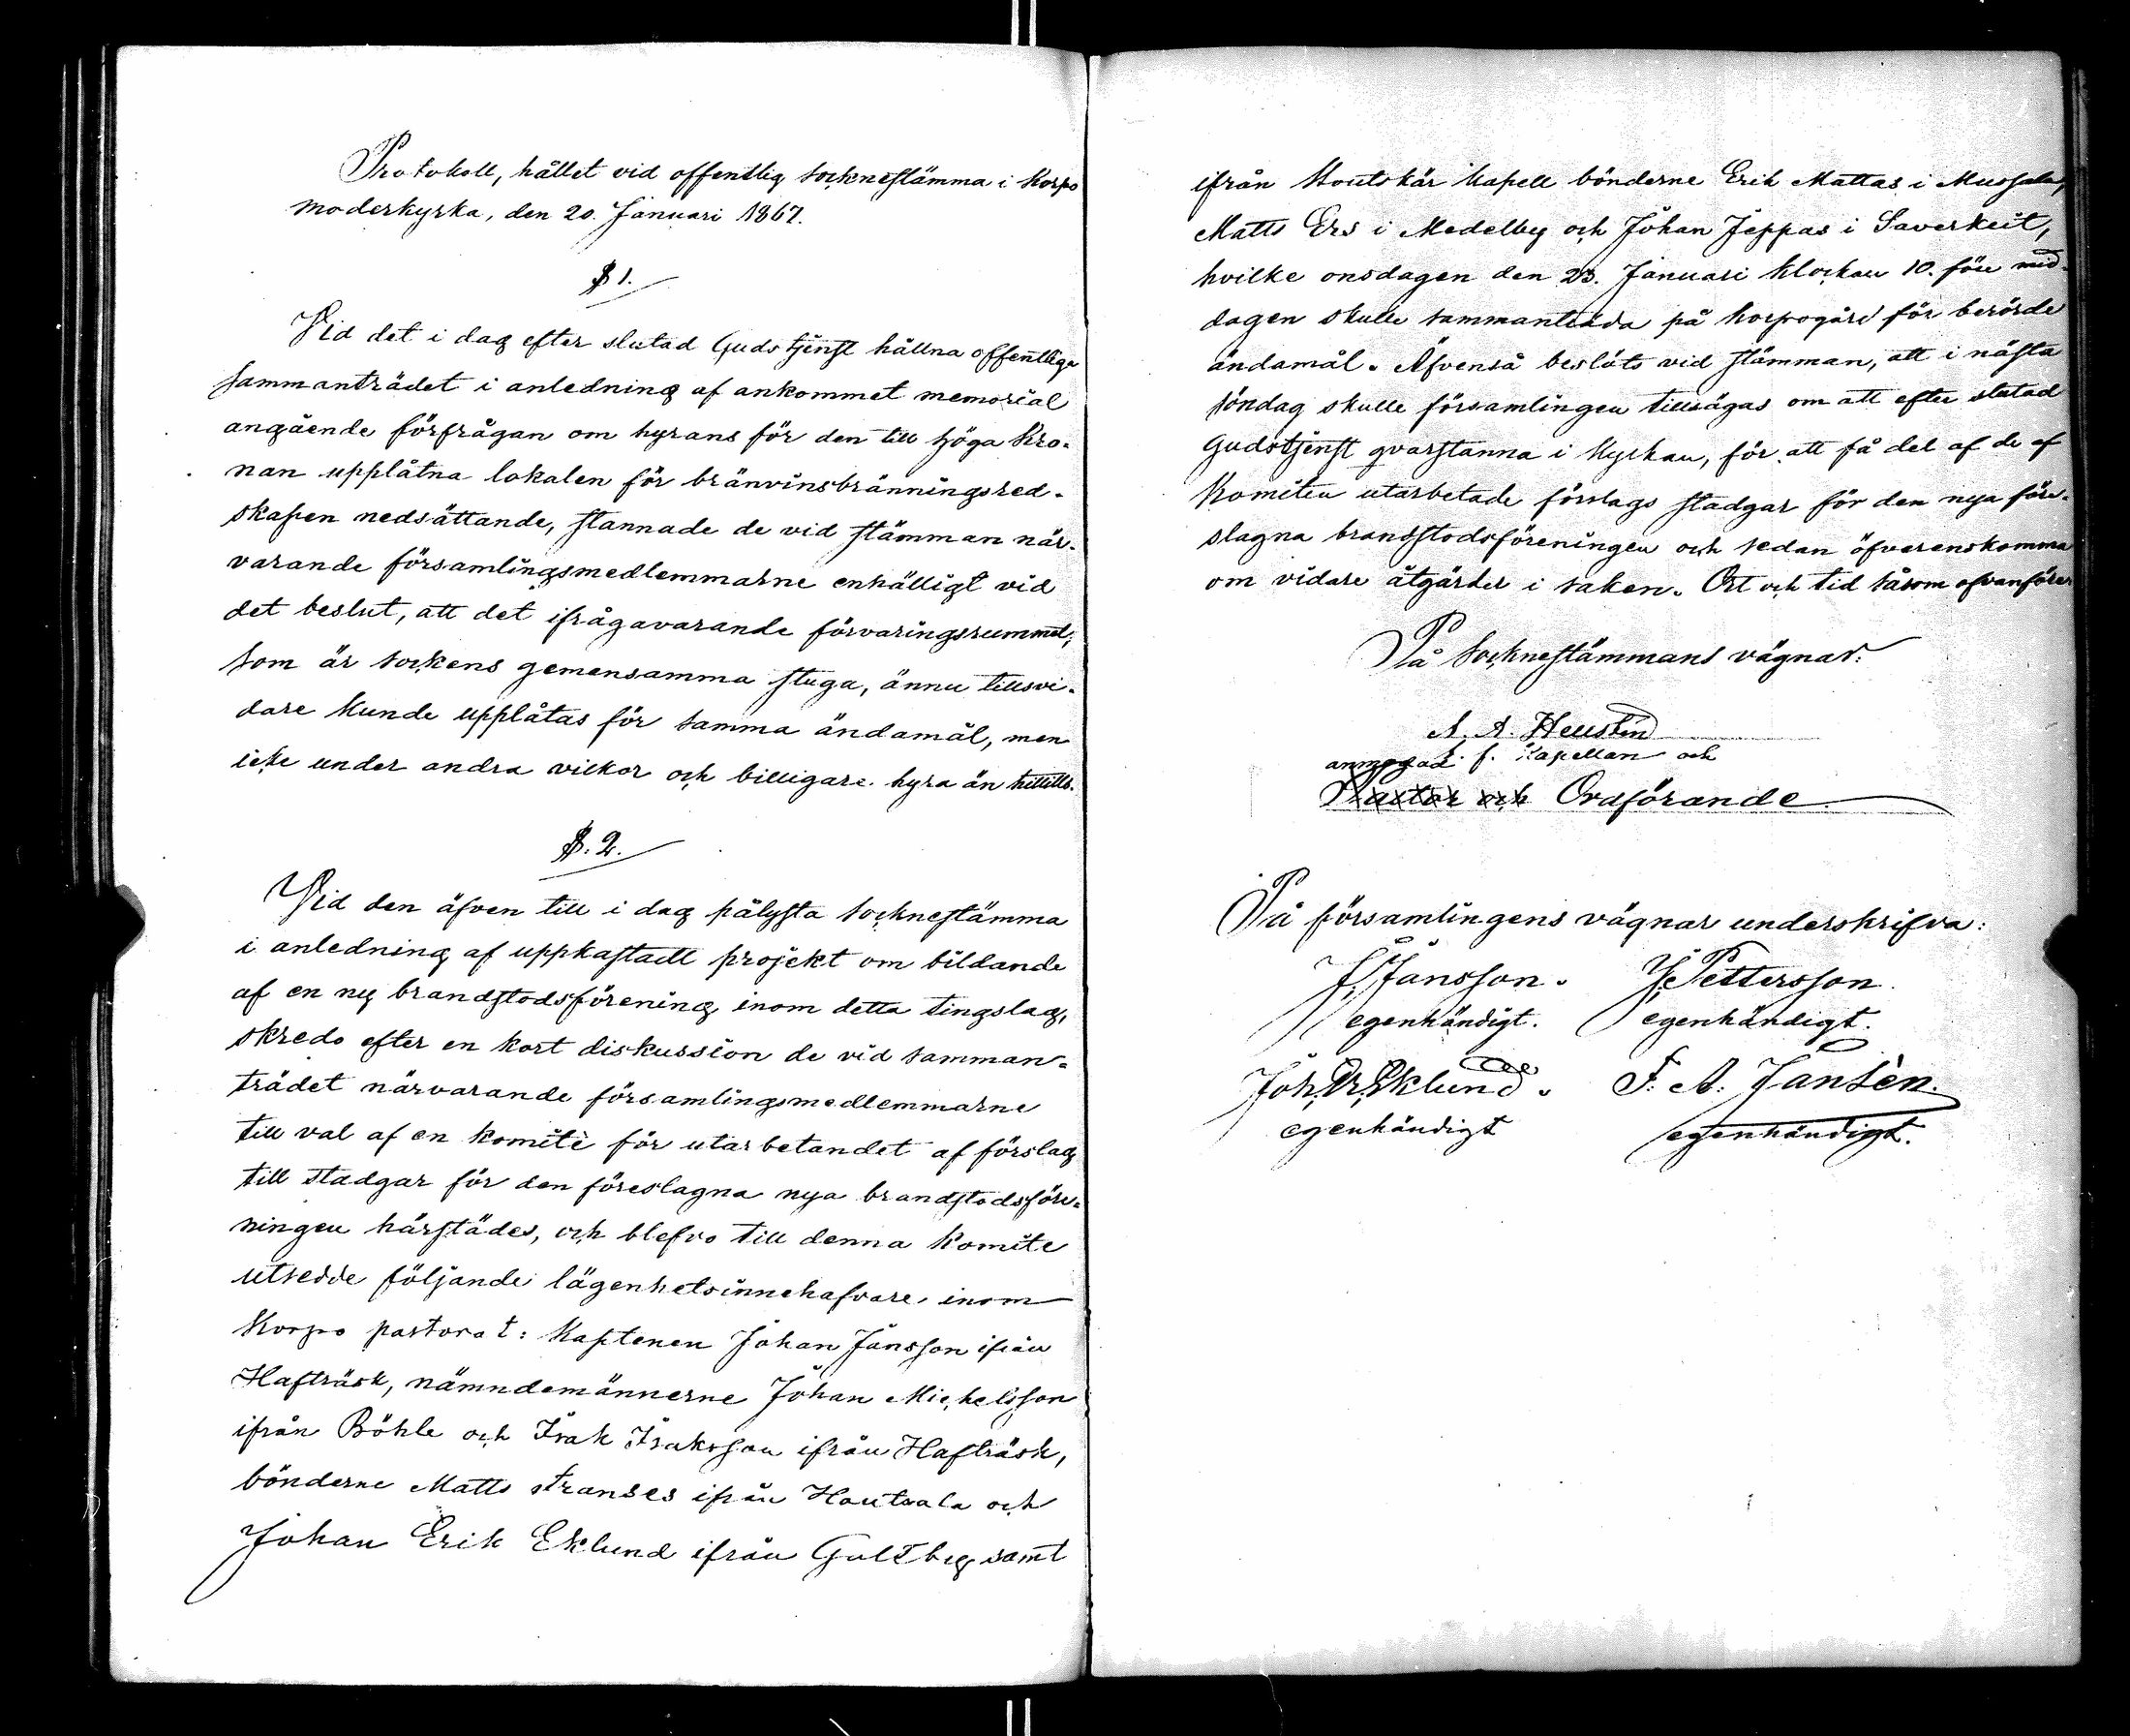 Protokoll, hållet vid offentlig socknestämma i Korpo
moderkyrka, den 20. Januari 1867.
§ 1.
Vid det i dag efter slutad Gudstjenst hållna offentliga
sammanträdet i anledning af ankommet memorial
angående förfrågan om hyrans för den till höga Kro-
nan upplåtna lokalen för bränvinsbränningsred-
skapen nedsättande, stannade de vid stämman när-
varande församlingsmedlemmarne enhälligt vid
det beslut, att det ifrågavarande förvaringsrummet,
som är sockens gemensamma stuga, ännu tillsvi-
dare kunde upplåtas för samma ändamål, men
icke under andra vilkor och billigare hyra än hittills.
§. 2.
Vid den äfven till i dag pålysta socknestämma
i anledning af uppkastadt projekt om bildande
af en ny brandstodsförening inom detta tingslag,
skredo efter en kort diskussion de vid samman-
trädet närvarande församlingsmedlemmarne
till val af en komitè för utarbetandet af förslag
till stadgar för den föreslagna nya brandstodsföre-
ningen härstädes, och blefvo till denna komite
utsedde följande lägenhetsinnehafvare inom
Korpo pastorat: Kaptenen Johan Jansson ifrån
Hafträsk, nämndemännerne Johan Michelsson
ifrån Böhle och Isak Isaksson ifrån Hafträsk,
bönderne Matts Franses ifrån Houtsala och
Johan Erik Eklund ifrån Galtby samt
ifrån Houtskär kapell bönderne Erik Mattas i Mussala,
Matts Ers i Medelby och Johan Jeppas i Saverkeit,
hvilke onsdagen den 23. Januari klockan 10. före mid-
dagen skulle sammanträda på Korpogård för berörde
ändamål. Äfvenså beslöts vid stämman, att i nästa
söndag skulle församlingen tillsägas om att efter slutad
Gudstjenst qvarstanna i kyrkan, för att få del af de af
Komiten utarbetade förslags stadgar för den nya före-
slagna brandstodsföreningen och sedan öfverenskomma
om vidare åtgärder i saken. Ort och tid såsom ofvanföre
På Socknestämmans vägnar:
A. A. Hellstén
anmodad t. f. Kapellan och
Pastor och Ordförande
På församlingens vägnar underskrifva:
J. Jansson. J. Pettersson.
egenhändigt. egenhändigt.
Joh. Er. Eklund. F. A. Jansèn.
egenhändigt egenhändigt.